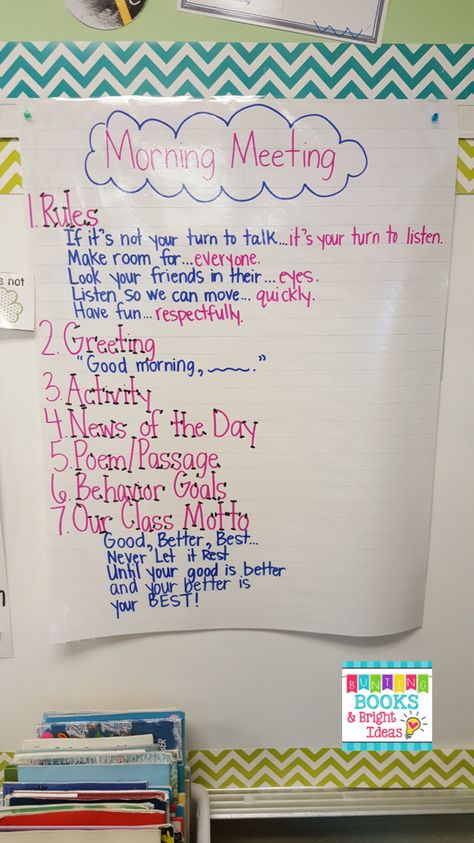 Morning Meeting
1. Rules
If it's not your turn to talk...it's your turn to listen.
Make room for...everyone.
Look your friends in their...eyes.
Listen, so we can move... quickly.
Have fun...respectfully.
s not
2. Greeting
"Good morning, ____."
3. Activity
4. News of the Day
5. Poem/Passage
6. Behavior Goals
7. Our Class Motto
Good, Better, Best...
Never Let it Rest
Until your good is better
and your better is
your BEST!
BUNTING
BOOKS
& Bright
Ideas